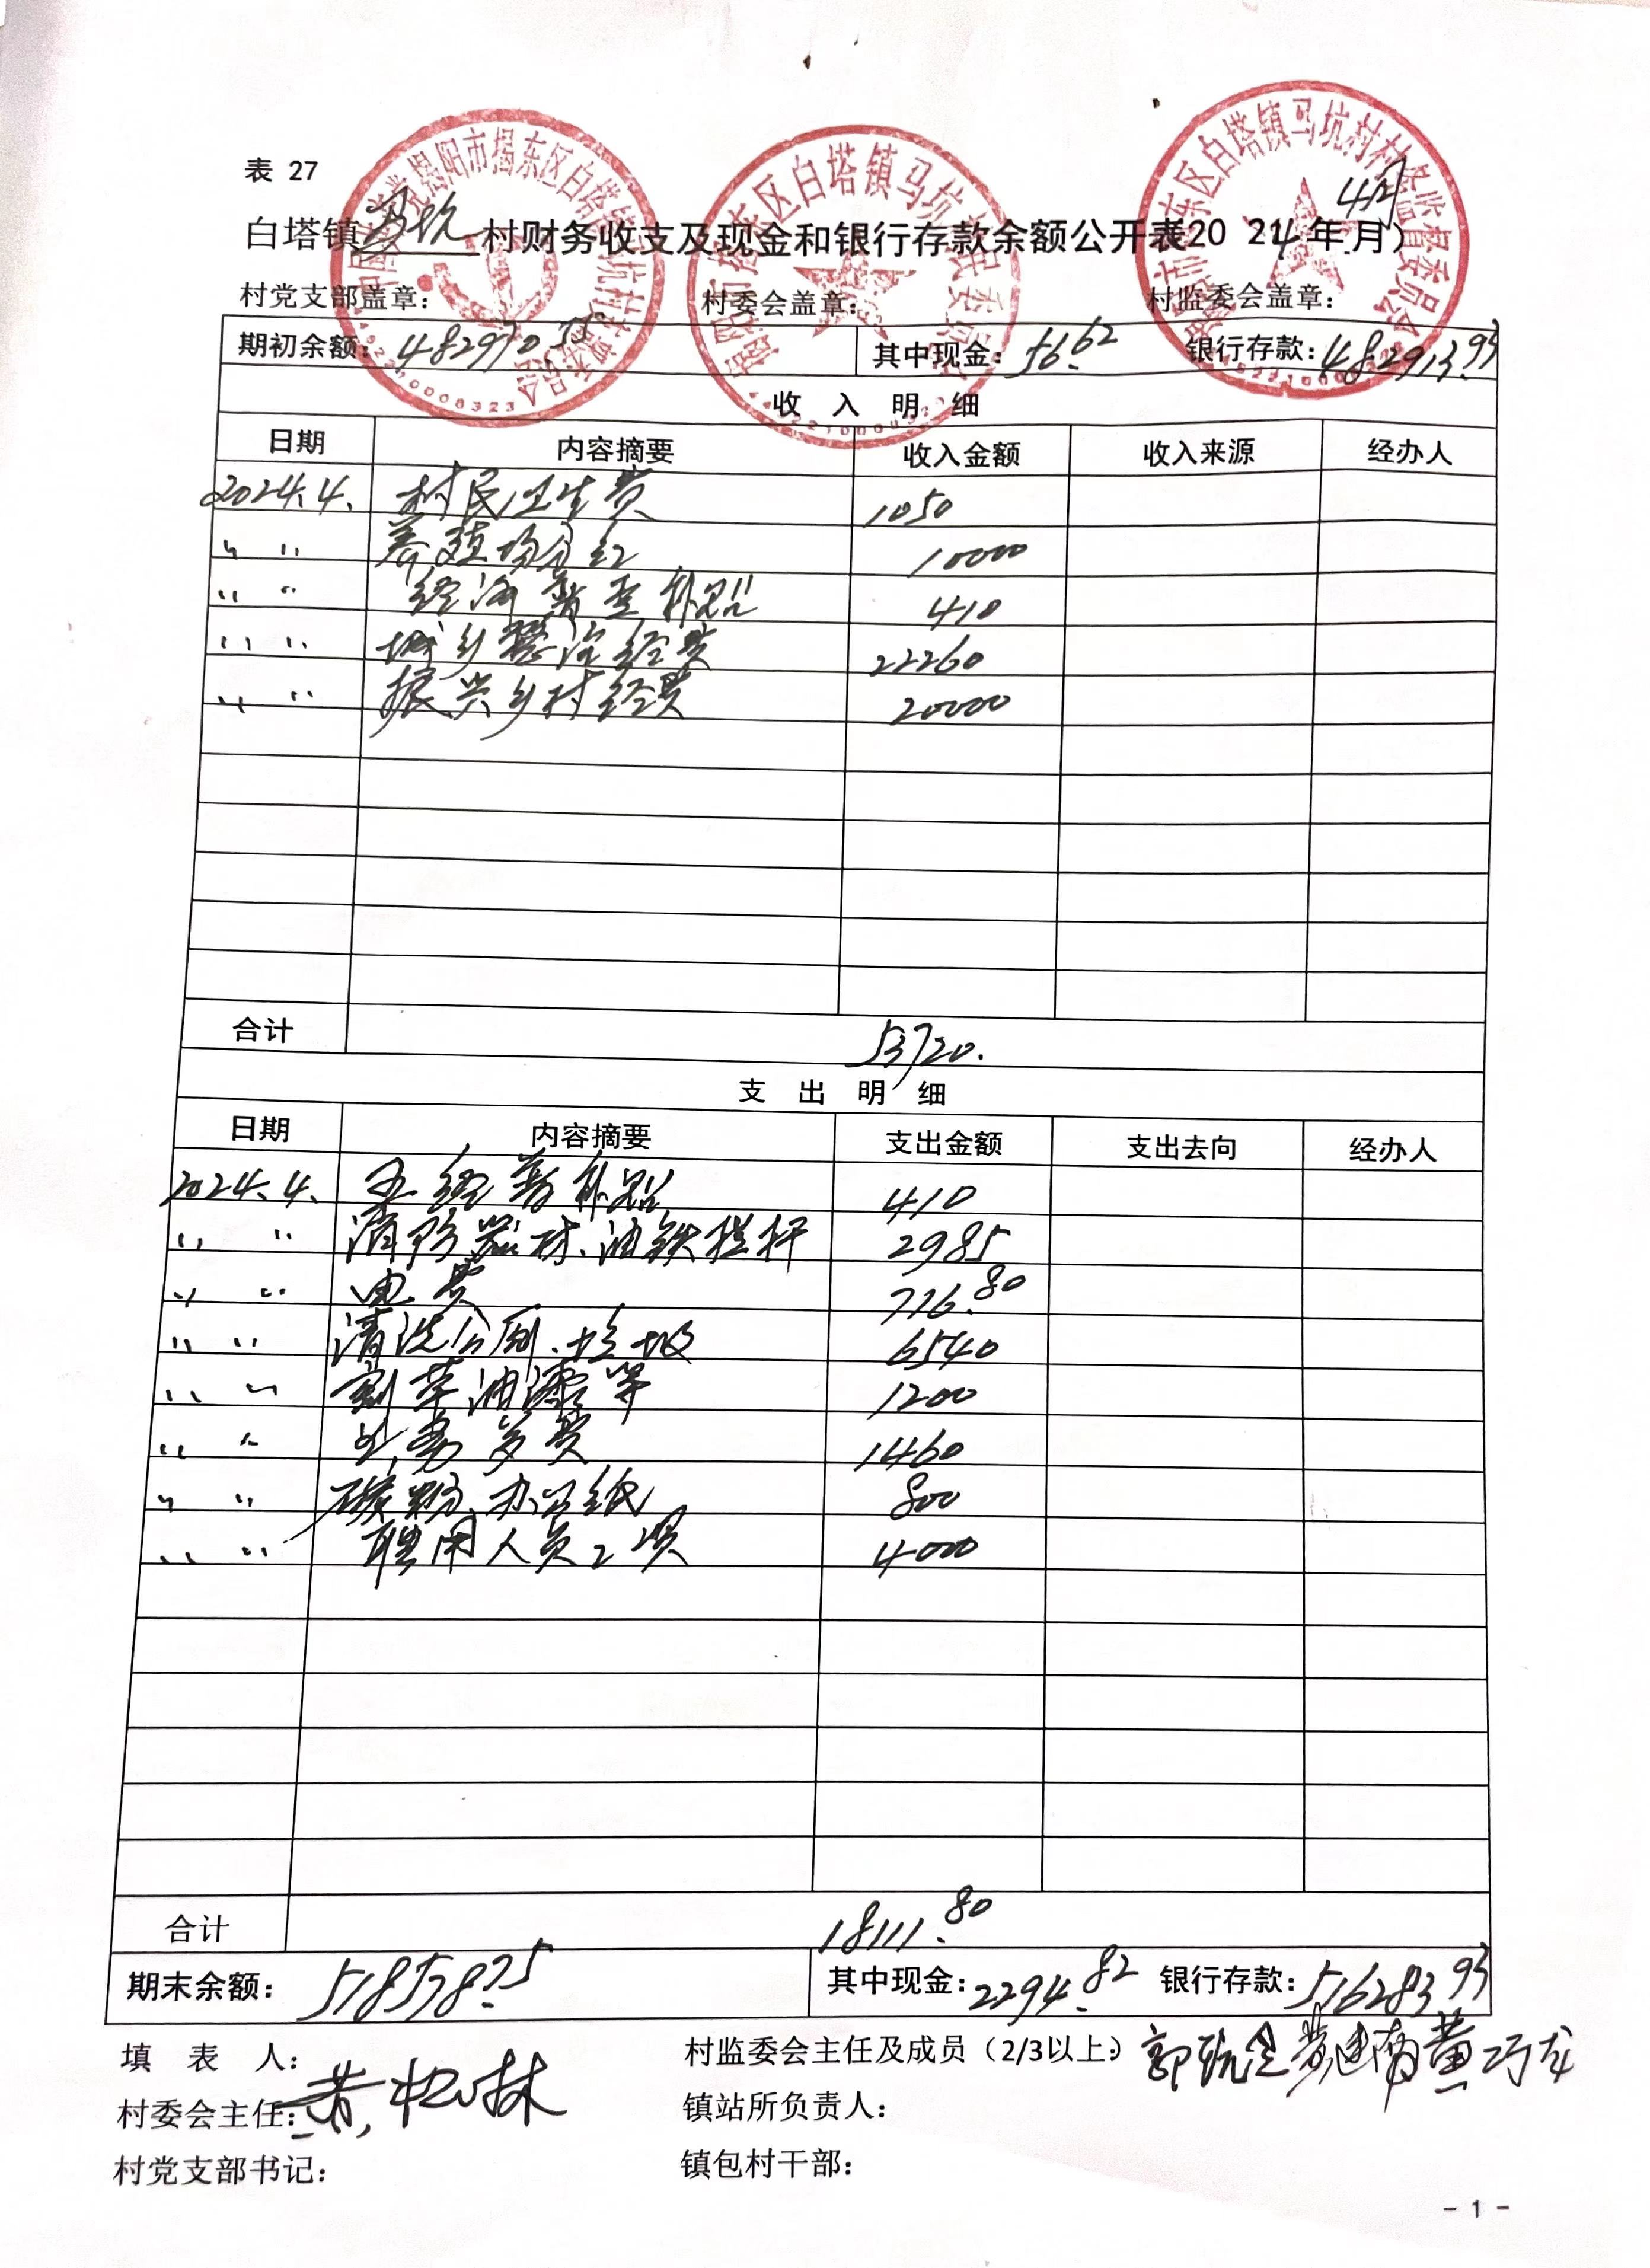 表 27
白塔镇马坑村财务收支及现金和银行存款余额公开表2024年4月)
村党支部盖章: 村委会盖章: 村监委会盖章:
期初余额: 482970.55 其中现金: 56.62 银行存款: 482913.93
收 入 明 细
日期 内容摘要 收入金额 收入来源 经办人
2024.4. 村民卫生费 1050
〃 〃 养殖场分红 10000
〃 〃 经济普查补贴 410
〃 〃 城乡整治经费 22260
〃 〃 振兴乡村经费 20000
合计 53720.
支 出 明 细
日期 内容摘要 支出金额 支出去向 经办人
2024.4. 五经普补贴 410
〃 〃 消防器材、油铁栏杆 2985
〃 〃 电费 716.80
〃 〃 清洗公厕、垃圾 6540
〃 〃 割草油漆等 1200
〃 〃 费 1460
〃 〃 碳粉、办公纸 800
〃 〃 聘用人员2项 4000
合计 18111.80
期末余额: 518578.75 其中现金: 2294.82 银行存款: 516283.93
填 表 人: 村监委会主任及成员(2/3以上): 郭 黄巧龙
村委会主任: 黄松林 镇站所负责人:
村党支部书记: 镇包村干部:
- 1 -